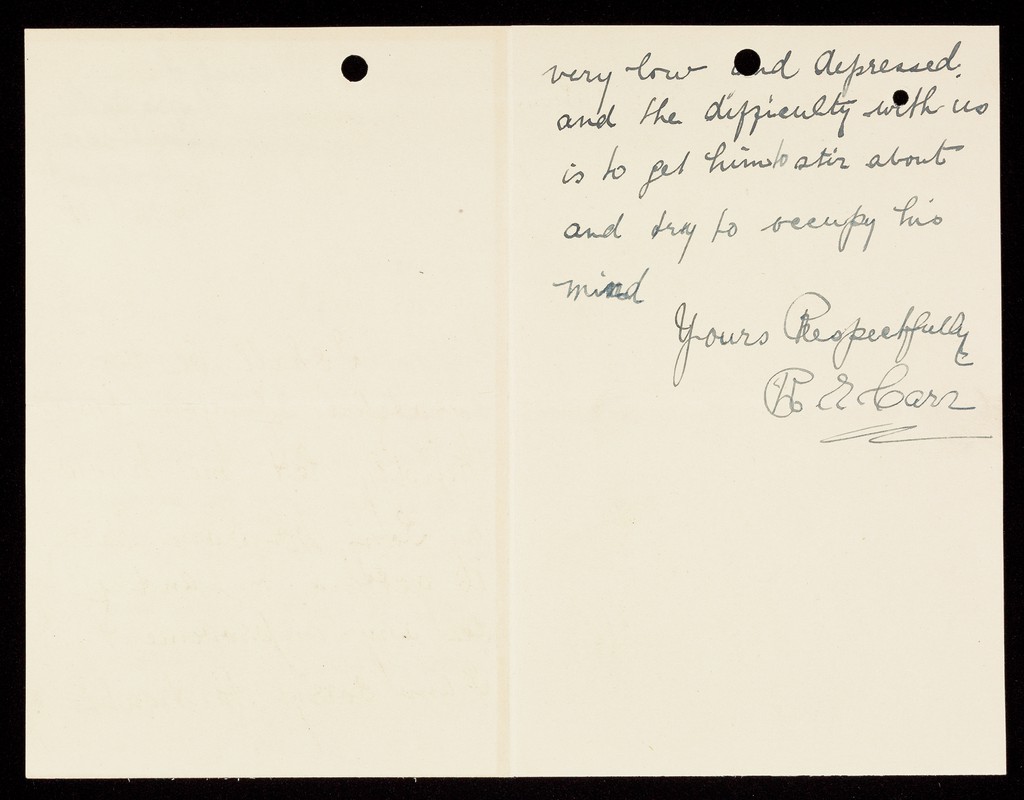 very low and depressed.
and the difficulty with us
is to get him to stir about
and try to occupy his
mind
Yours Respectfully
R E Carr